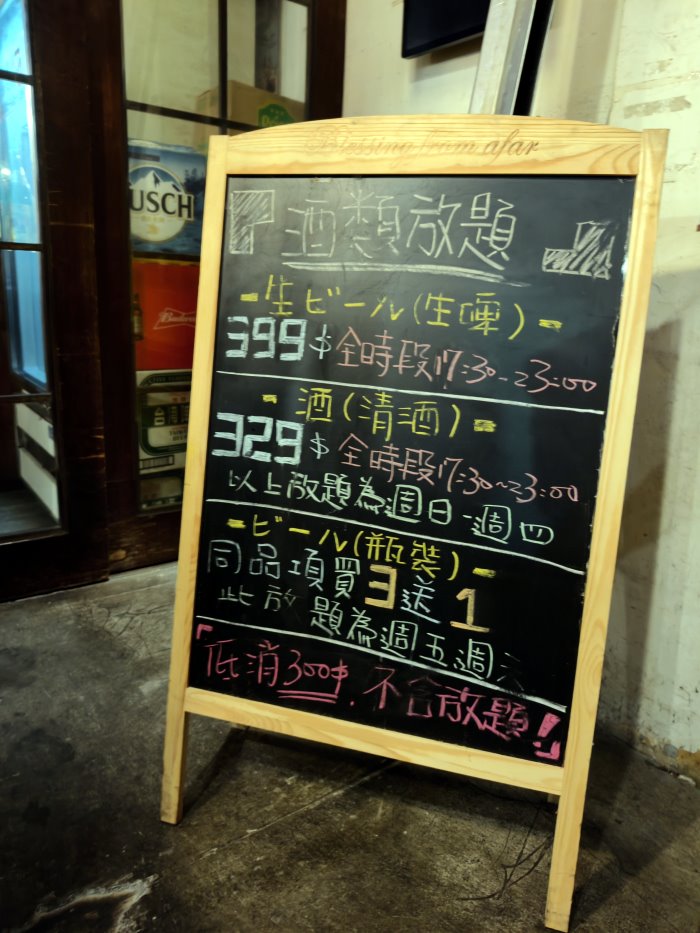 Blessing from afar
酒類放題
生ビール(生啤)
399$ 全時段17:30-23:00
酒(清酒)
329$ 全時段17:30~23:00
以上放題為週日-週四
ビール(瓶裝)
同品項買3送1
此放題為週五週六
「低消300$.不含放題!」
BUSCH
Budweiser